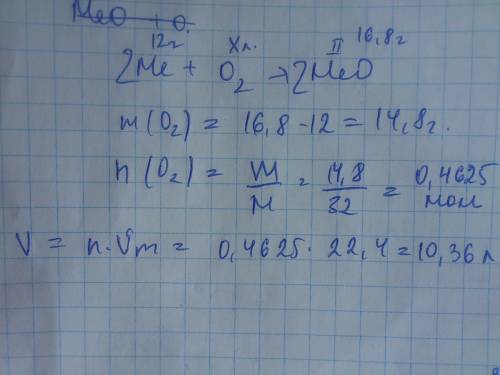 MeO + O.
12г Xл. II 16,8г
2Me + O₂ → 2MeO
m(O₂) = 16,8 - 12 = 14,8г.
n(O₂) = m/M = 14,8/32 = 0,4625 моль
V = n·Vm = 0,4625 · 22,4 = 10,36 л